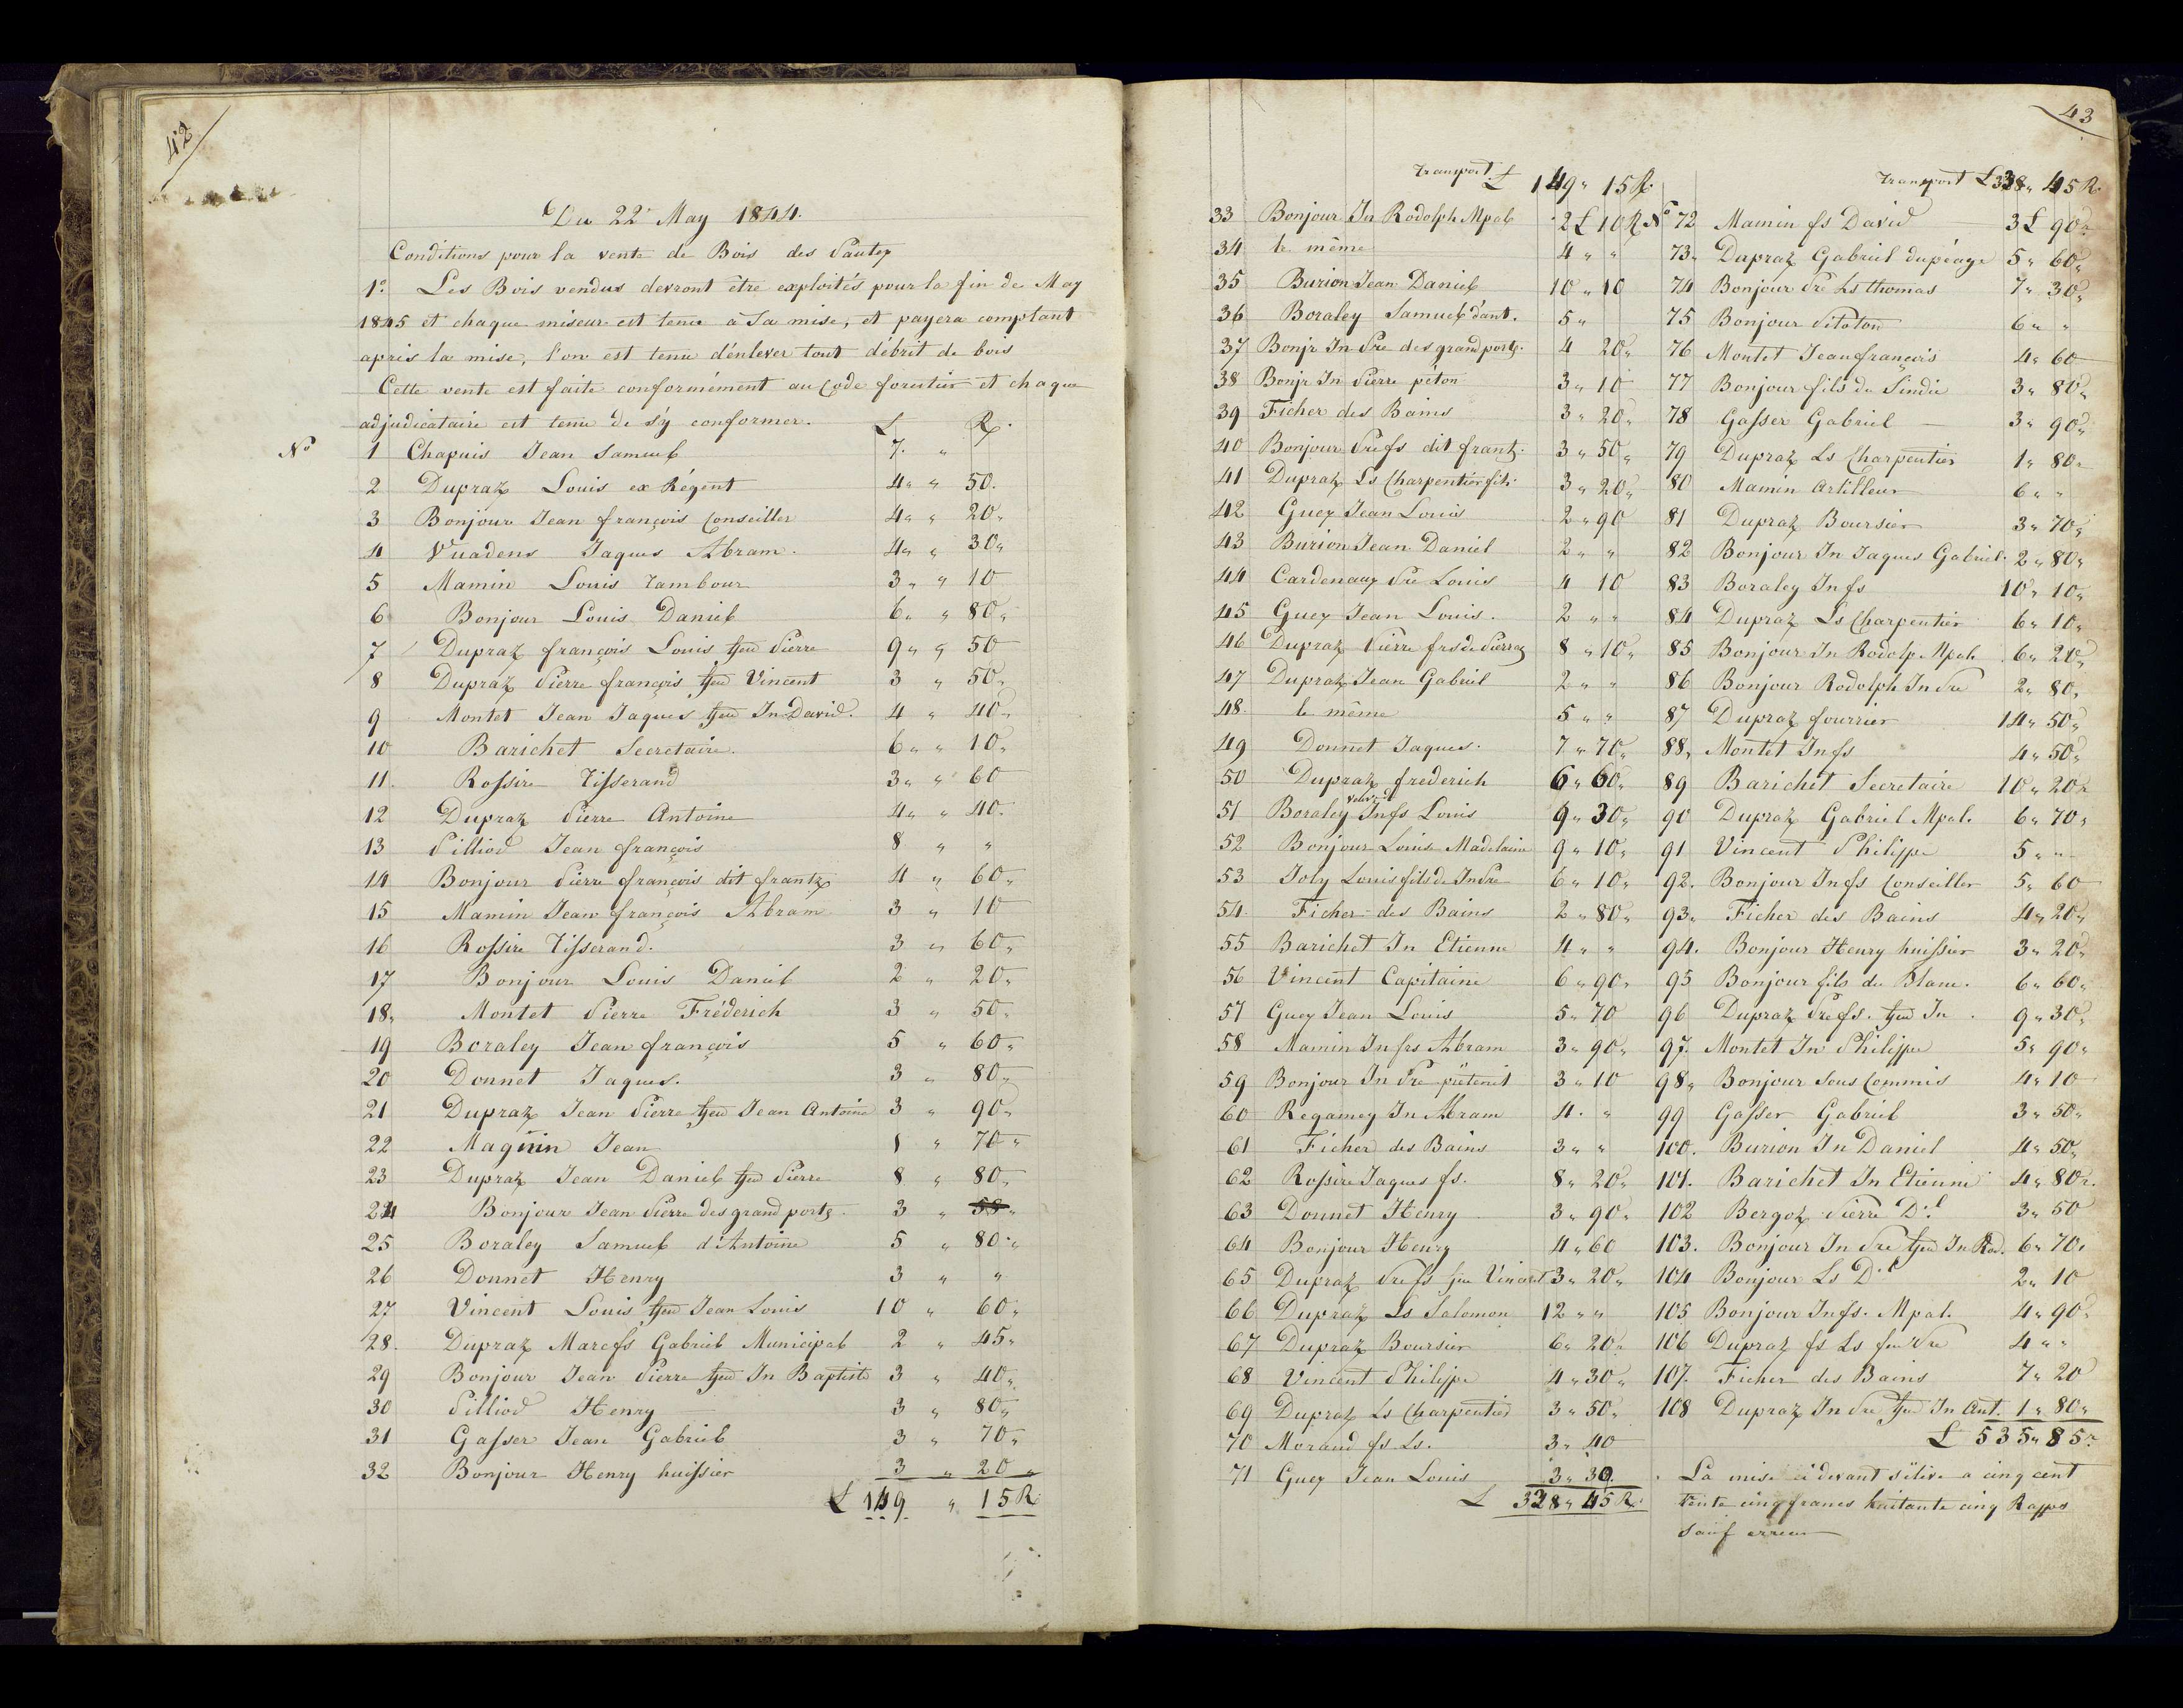 42
Du 22 May 1844.
Conditions pour la vente de Bois des
1° Les Bois vendus devront être exploités pour la fin de May
1845 et chaque miseur est tenu à sa mise, et payera comptant
après la mise, l'on est tenu d'énlever tout débrit de bois
Cette vente est faite conformément au Code forestier et chaque
adjudicataire est tenu de s'y conformer. L. R.
N° 1 Chapuis Jean Samuel 7. "
2 Dupraz Louis ex Régent 4 " " 50.
3 Bonjour Jean françois Conseiller 4 " " 20 "
4 Vuadens Jaques Abram. 4 " " 30 "
5 Mamin Louis tambour 3 " " 10
6 Bonjour Louis Daniel 6 " " 80 "
7 Dupraz françois Louis feu Pierre 9 " " 50
8 Dupraz Pierre françois feu Vincent 3 " 50 "
9 Montet Jean Jaques feu Jn David. 4 " 40 "
10 Barichet Secretaire. 6 " " 10 "
11. Rossire Tisserand 3 " " 60
12 Dupraz Pierre Antoine 4 " " 40.
13 Pilliod Jean françois 8 " "
14 Bonjour Pierre françois dit frantz 4 " 60 "
15 Mamin Jean françois Abram 3 " 10
16 Rossire Tisserand. 3 " 60 "
17 Bonjour Louis Daniel 2 " 20 "
18 " Montet Pierre Fréderich 3 " 50 "
19 Boraley Jean françois 5 " 60 "
20 Donnet Jaques. 3 " 80 "
21 Dupraz Jean Pierre feu Jean Antoine 3 " 90 "
22 Magnin Jean 1 " 70 "
23 Dupraz Jean Daniel feu Pierre 8 " 80 "
24 Bonjour Jean Pierre des grand portz. 3 "
25 Boraley Samuel d'Antoine 5 " 80 "
26 Donnet Henry 3 " "
27 Vincent Louis feu Jean Louis 10 " 60 "
28. Dupraz Marc fs Gabriel Municipal 2 " 45 "
29 Bonjour Jean Pierre feu Jn Baptiste 3 " 40 "
30 Pilliod Henry 3 " 80 "
31 Gasser Jean Gabriel 3 " 70 "
32 Bonjour Henry huissier 3 " 20 "
L 149 " 15 R.
43
Transport L 149 " 15 R.
33 Bonjour Jn Rodolph Mpal 2 L 10 R
34 le même 4 " "
35 Burion Jean Daniel 10 " 10
36 Boraley Samuel d'ant. 5 "
37 Bonjr Jn Pre des grand portz. 4 20 "
38 Bonjr Jn Pierre péton 3 " 10
39 Ficher des Bains 3 " 20 "
40 Bonjour Pre fs dit frantz. 3 " 50 "
41 Dupraz Ls Charpentier fils 3 " 20 "
42 Guex Jean Louis 2 " 90
43 Burion Jean Daniel 2 " "
44 Cardenaux Pre Louis 4 10
45 Guex Jean Louis. 2 " "
46 Dupraz Pierre frs de Pierraz 8 " 10 "
47 Dupraz Jean Gabriel 2 " "
48. le même 5 " "
49 Donnet Jaques. 7 " 70 "
50 Dupraz frederich 6 " 60 "
51 Boraley Jn fs Louis 9 " 30 "
52 Bonjour Louis Madelaine 9 " 10 "
53 Joly Louis fils de Jn Pre 6 " 10 "
54. Ficher des Bains 2 " 80 "
55 Barichet Jn Etienne 4 " "
56 Vincent Capitaine 6 " 90 "
57 Guex Jean Louis 5 " 70
58 Mamin Jn frs Abram 3 " 90 "
59 Bonjour Jn Pre 3 " 10
60 Regamey Jn Abram 4. "
61 Ficher des Bains 3 " "
62 Rossire Jaques fs. 8 " 20 "
63 Donnet Henry 3 " 90 "
64 Bonjour Henry 4 " 60
65 Dupraz Pre fs feu Vincent 3 " 20 "
66 Dupraz Ls Salomon 12 " "
67 Dupraz Boursier 6 " 20 "
68 Vincent Philippe 4 " 30 "
69 Dupraz Ls Charpentier 3 " 50 "
70 Morand fs Ls. 3 " 40
71 Guex Jean Louis 3 " 30.
L 328 " 45 R.
Transport L 328 " 45 R.
N° 72 Mamin fs David 3 L 90 "
73 " Dupraz Gabriel du péage 5 " 60 "
74 Bonjour Pre Ls thomas 7 " 30 "
75 Bonjour Pitoton 6 " "
76 Montet Jean françois 4 " 60
77 Bonjour fils du Sindic 3 " 80 "
78 Gasser Gabriel 3 " 90 "
79 Dupraz Ls Charpentier 1 " 80 "
80 Mamin Artilleur 6 " "
81 Dupraz Boursier 3 " 70 "
82 Bonjour Jn Jaques Gabriel. 2 " 80 "
83 Boraley Jn fs 10 " 10 "
84 Dupraz Ls Charpentier 6 " 10 "
85 Bonjour Jn Rodolp. Mpal. 6 " 20 "
86 Bonjour Rodolph Jn Pre 2 " 80 "
87 Dupraz fourrier 14 " 50 "
88 " Montet Jn fs 4 " 50 "
89 Barichet Secretaire 10 " 20 "
90 Dupraz Gabriel Mpal. 6 " 70 "
91 Vincent Philippe 5 " "
92. Bonjour Jn fs Conseiller 5 " 60
93 " Ficher des Bains 4 " 20 "
94. Bonjour Henry huissier 3 " 20 "
95 Bonjour fils du Blanc. 6 " 60 "
96 Dupraz Pre fs. feu Jn 9 " 30 "
97. Montet Jn Philippe 5 " 90 "
98 " Bonjour sous Commis 4 " 10
99 Gasser Gabriel 3 " 50 "
100. Burion Jn Daniel 4 " 50 "
101. Barichet Jn Etienne 4 " 80 "
102 Bergoz Pierre Dl 3 " 50
103. Bonjour Jn Pre feu Jn Rod. 6 " 70 "
104 Bonjour Ls Dl 2 " 10
105 Bonjour Jn fs. Mpal. 4 " 90 "
106 Dupraz fs Ls feu Pre 4 " "
107. Ficher des Bains 7 " 20
108 Dupraz Jn Pre feu Jn Ant. 1 " 80 "
L 535 " 85 "
La mise ci devant s'élève a cinq cent
trente cinq francs huitante cinq Rapps
sauf erreur